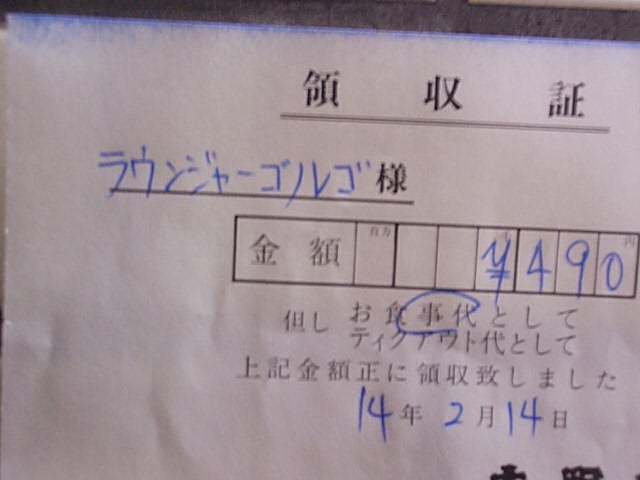 領収証
ラウンジャーゴルゴ様
金額 百万 千 円 ¥490
但し お食事代として
テイクアウト代として
上記金額正に領収致しました
14年 2月14日